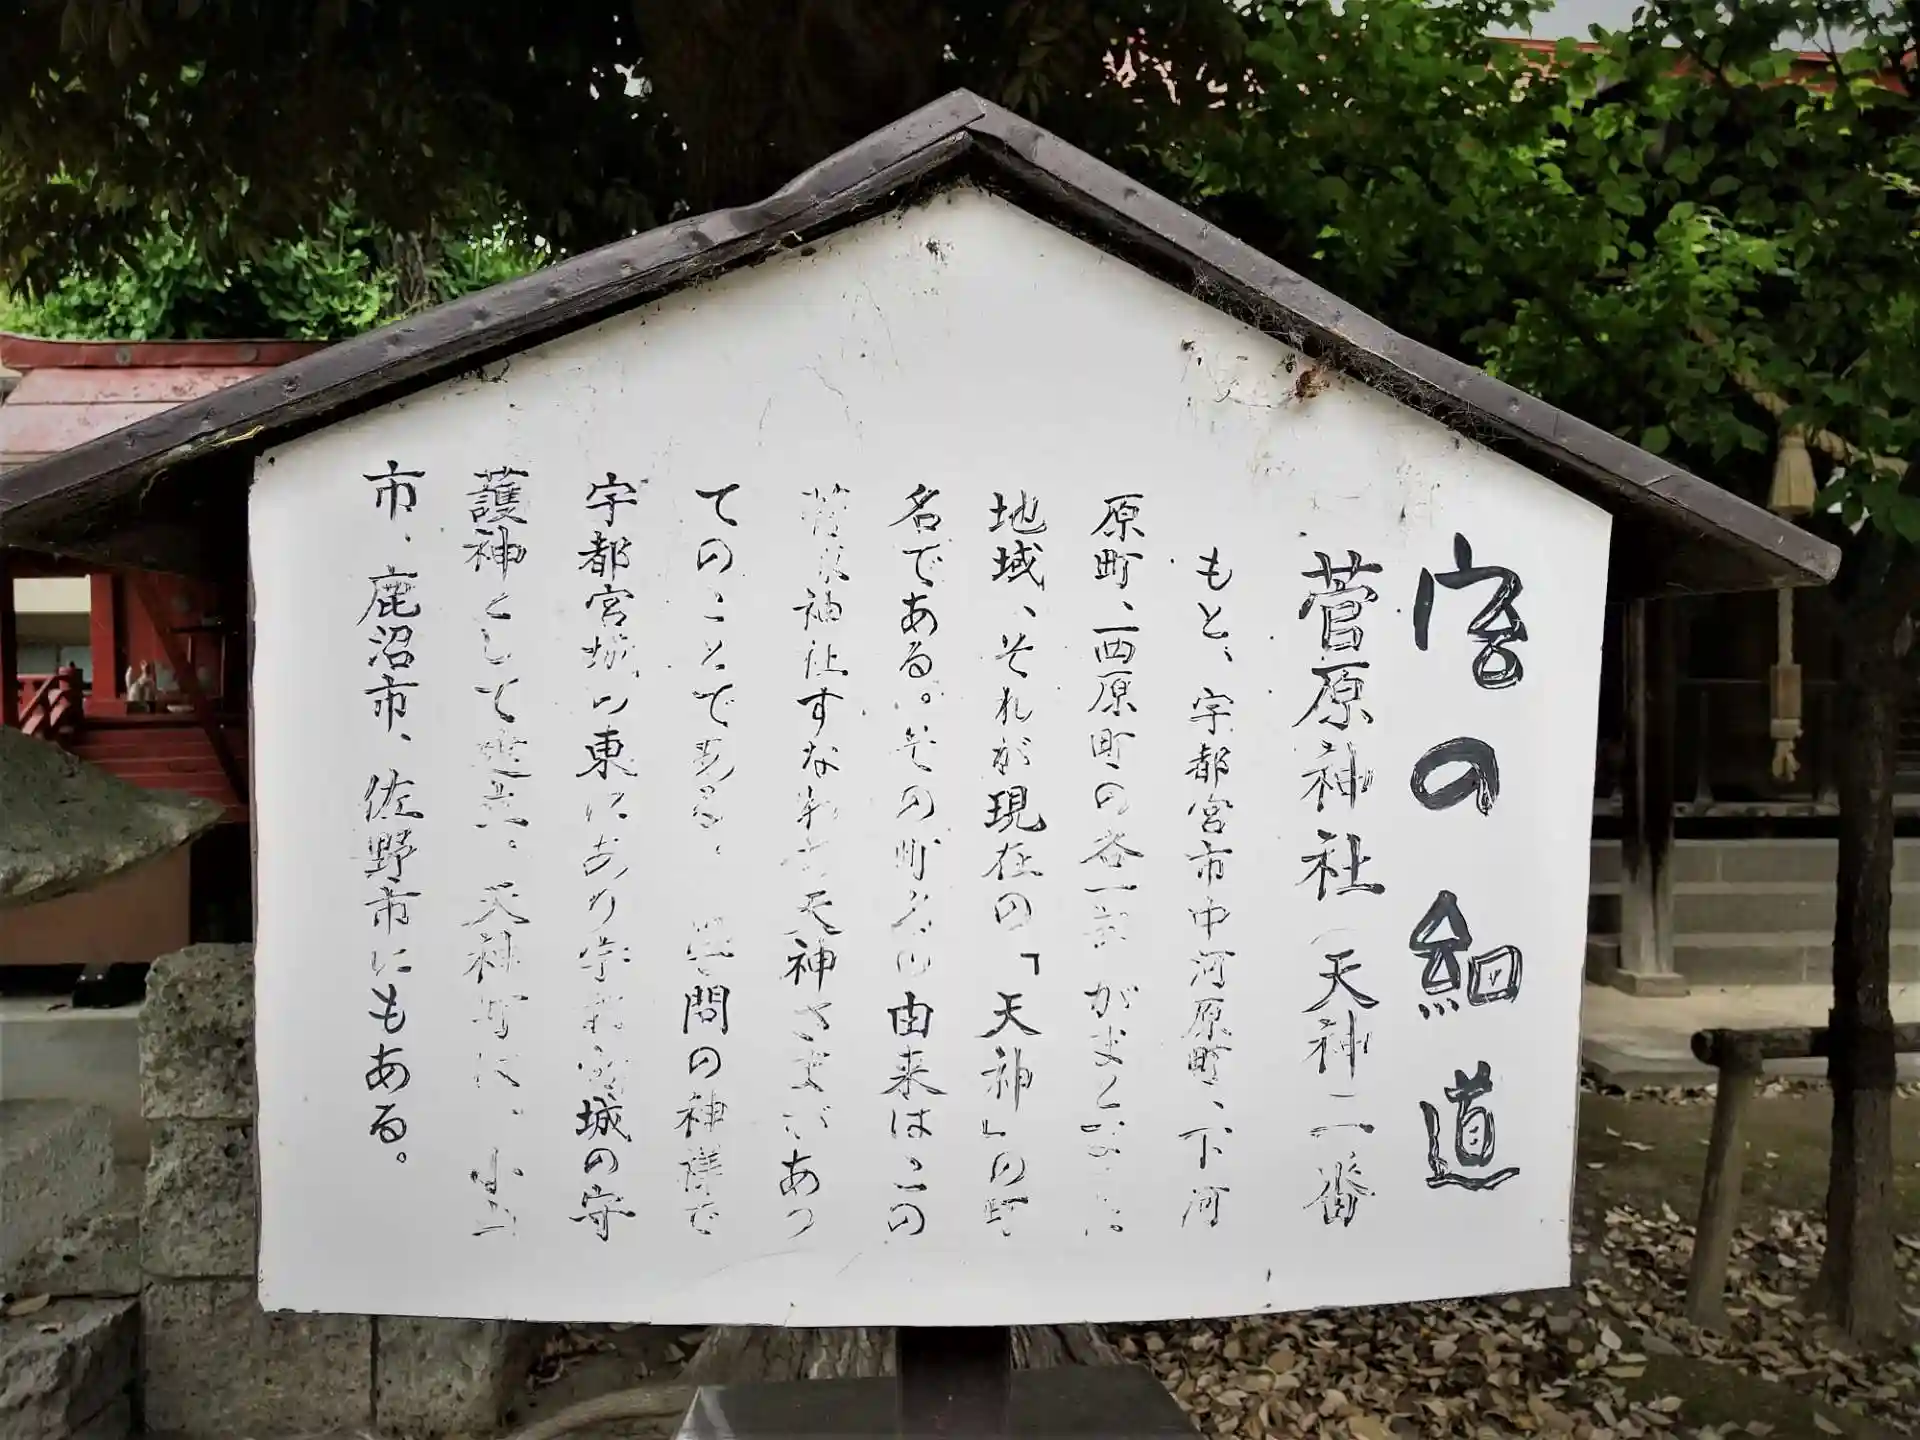 宮の細道
菅原神社(天神二番
もと、宇都宮市中河原町、下河
原町、西原町の各一部がまと
地域、それが現在の「天神」の町
名である。その町名の由来はこの
菅原神社すなわち天神さまがあっ
てのことである。学問の神様で
宇都宮城の東にあり宇都宮城の守
護神として建立。天神町は、小山
市、鹿沼市、佐野市にもある。